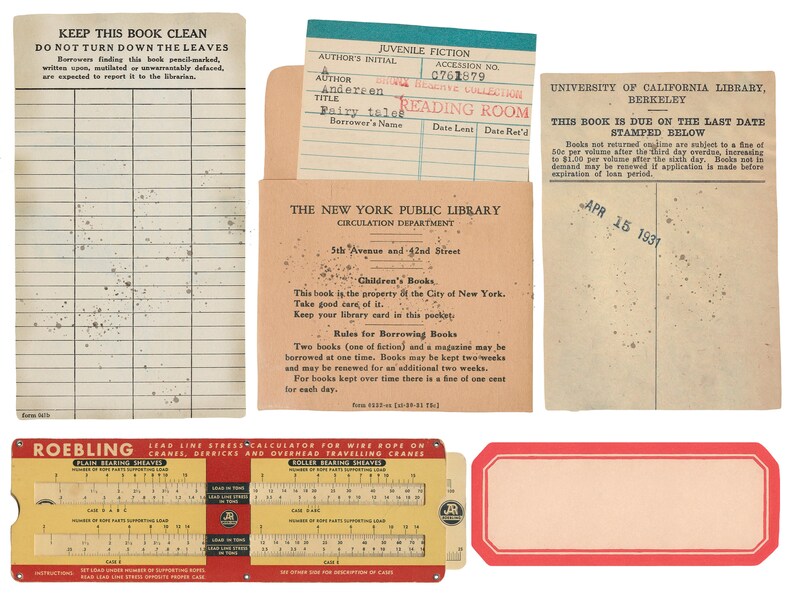 KEEP THIS BOOK CLEAN
DO NOT TURN DOWN THE LEAVES
Borrowers finding this book pencil-marked,
written upon, mutilated or unwarrantably defaced,
are expected to report it to the librarian.
form 041b
JUVENILE FICTION
AUTHOR'S INITIAL
ACCESSION NO.
A
C761879
AUTHOR
BRONX RESERVE COLLECTION
Andersen
TITLE
READING ROOM
Fairy tales
Borrower's Name
Date Lent
Date Ret'd
THE NEW YORK PUBLIC LIBRARY
CIRCULATION DEPARTMENT
5th Avenue and 42nd Street
Children's Books
This book is the property of the City of New York.
Take good care of it.
Keep your library card in this pocket.
Rules for Borrowing Books
Two books (one of fiction) and a magazine may be
borrowed at one time. Books may be kept two weeks
and may be renewed for an additional two weeks.
For books kept over time there is a fine of one cent
for each day.
UNIVERSITY OF CALIFORNIA LIBRARY,
BERKELEY
THIS BOOK IS DUE ON THE LAST DATE
STAMPED BELOW
Books not returned on time are subject to a fine of
50c per volume after the third day overdue, increasing
to $1.00 per volume after the sixth day. Books not in
demand may be renewed if application is made before
expiration of loan period.
APR 15 1931
ROEBLING
LEAD LINE STRESS CALCULATOR FOR WIRE ROPE ON
CRANES, DERRICKS AND OVERHEAD TRAVELLING CRANES
PLAIN BEARING SHEAVES
ROLLER BEARING SHEAVES
NUMBER OF ROPE PARTS SUPPORTING LOAD
NUMBER OF ROPE PARTS SUPPORTING LOAD
LOAD IN TONS
LEAD LINE STRESS
IN TONS
CASE D A B C
CASE D A B C
NUMBER OF ROPE PARTS SUPPORTING LOAD
NUMBER OF ROPE PARTS SUPPORTING LOAD
LOAD IN TONS
LEAD LINE STRESS
IN TONS
CASE E
CASE E
INSTRUCTIONS: SET LOAD UNDER NUMBER OF SUPPORTING ROPES.
READ LEAD LINE STRESS OPPOSITE PROPER CASE.
SEE OTHER SIDE FOR DESCRIPTION OF CASES